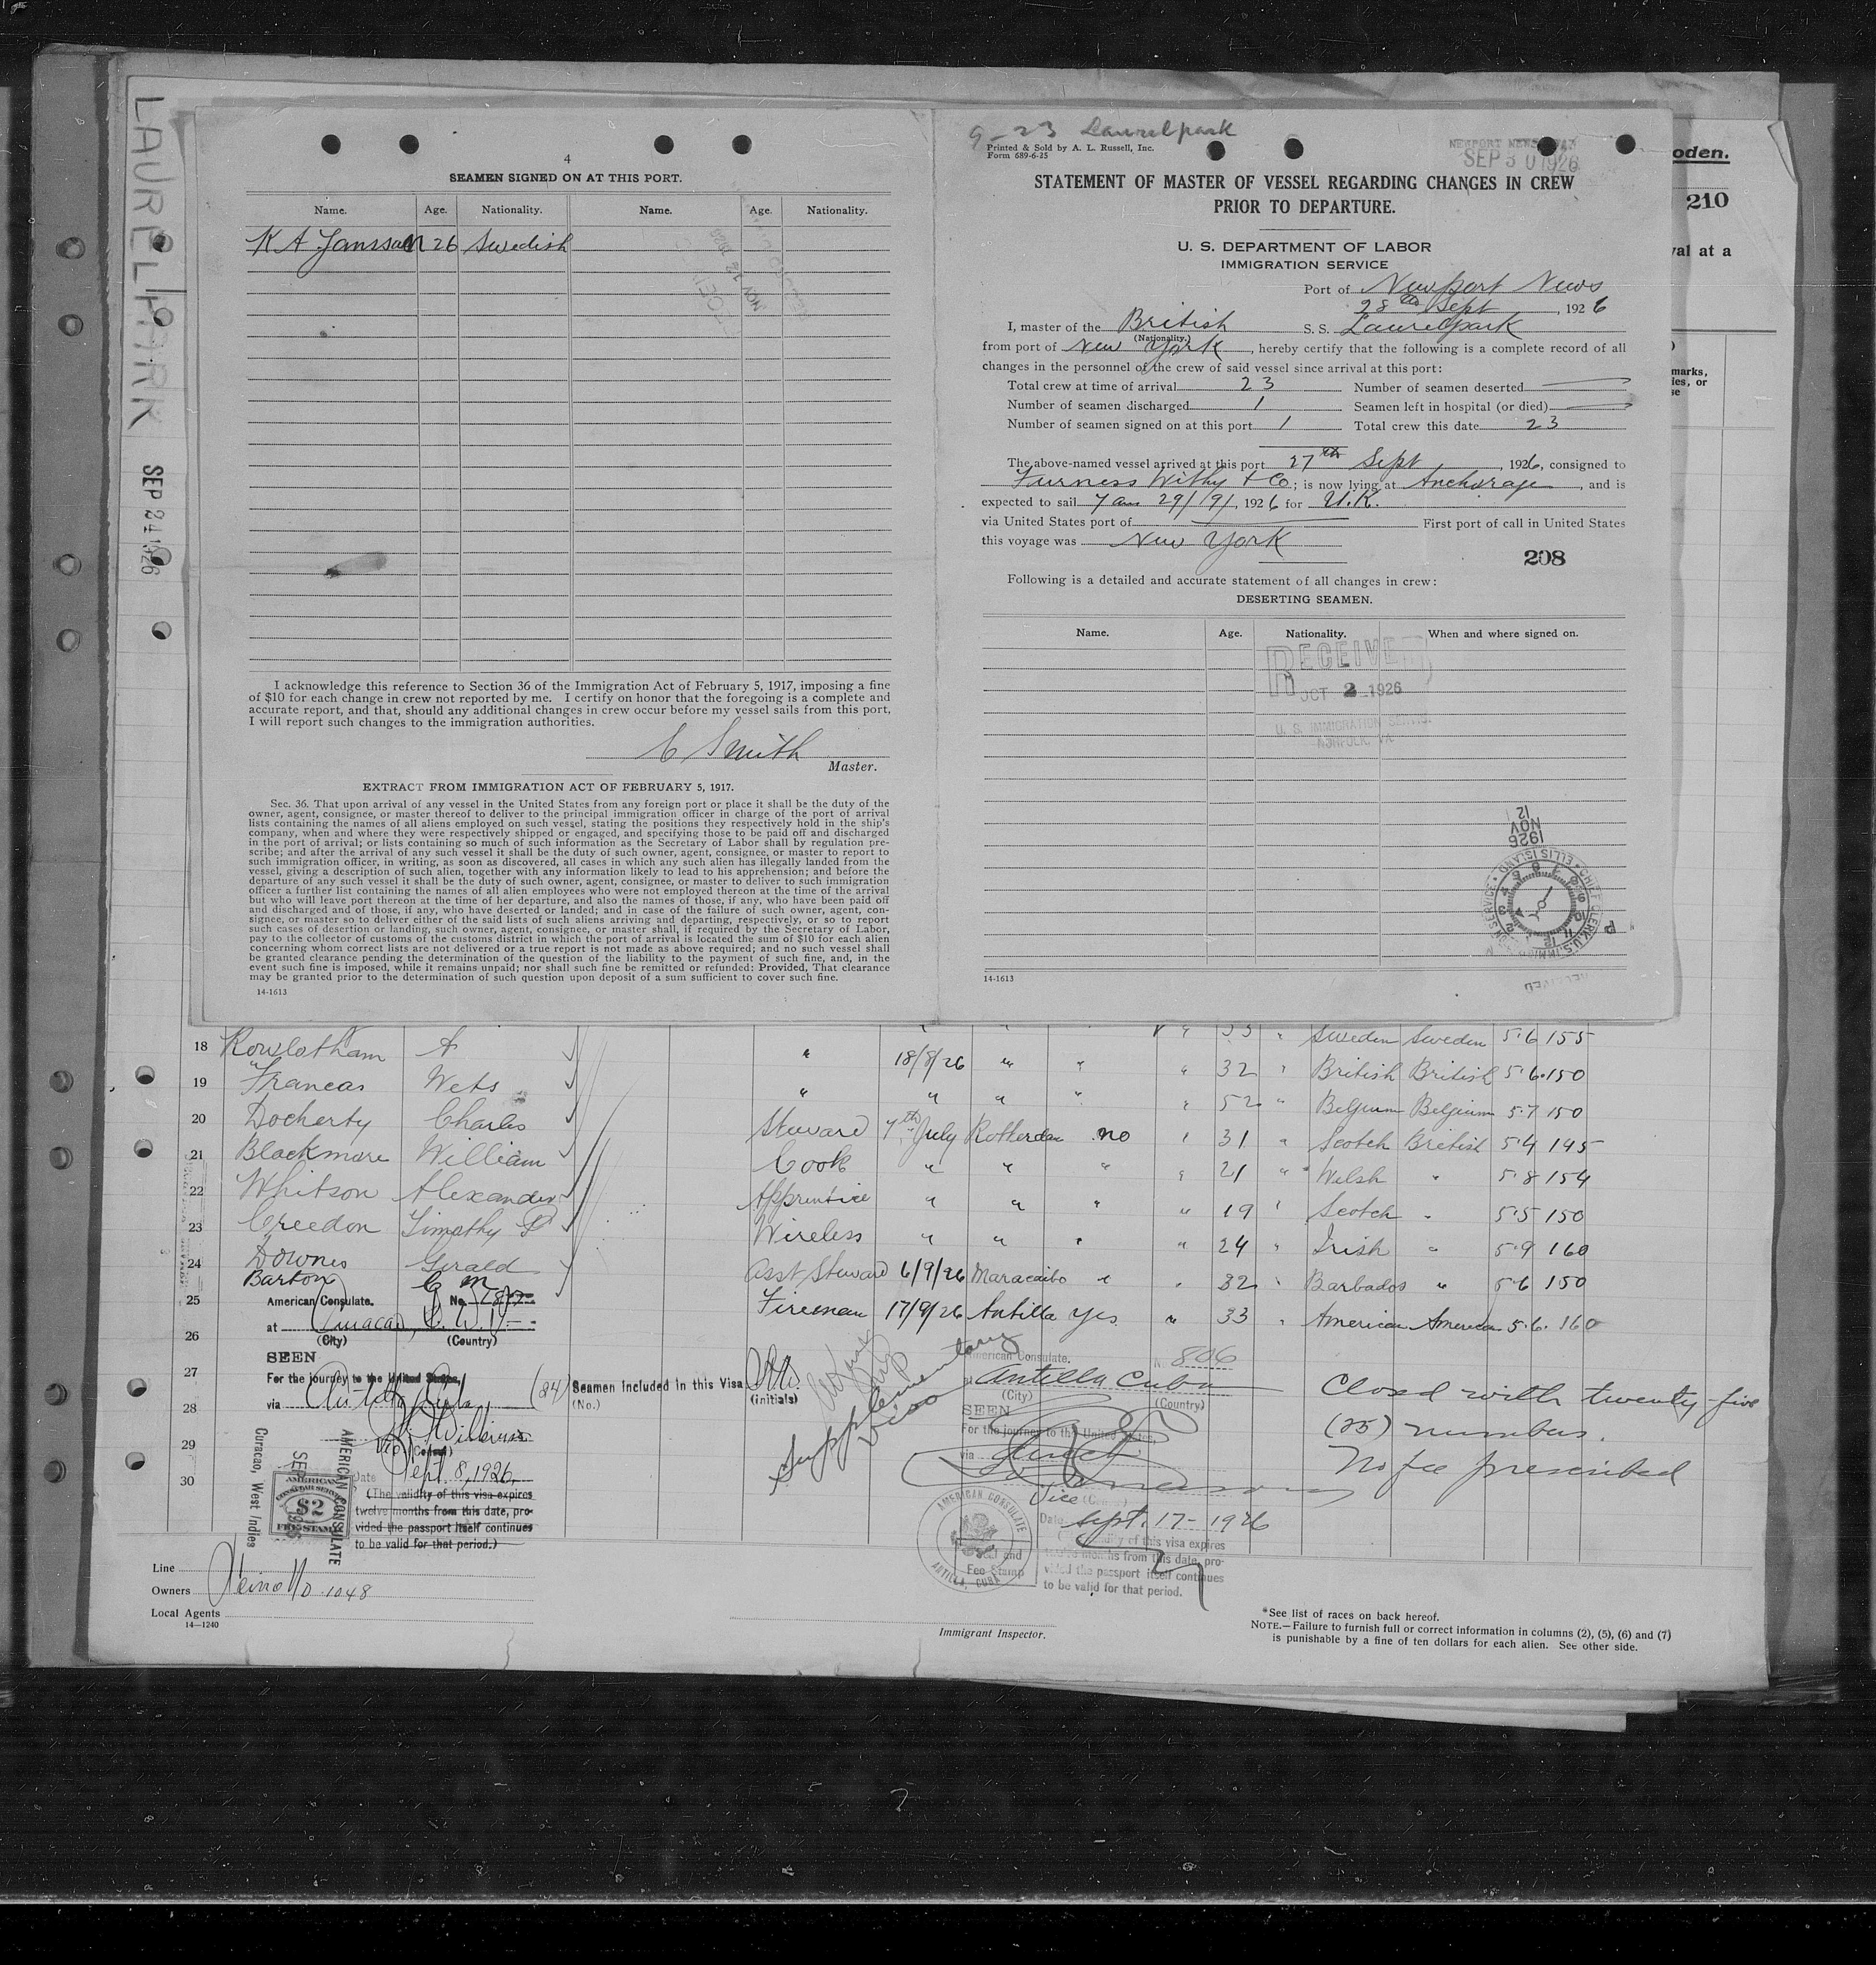 LAURELPARK SEP 24 1926
4
SEAMEN SIGNED ON AT THIS PORT.
Name. Age. Nationality. Name. Age. Nationality.
K A Janssen 26 Swedish
I acknowledge this reference to Section 36 of the Immigration Act of February 5, 1917, imposing a fine
of $10t for each change in crew not reported by me. I certify on honor that the foregoing is a complete and
accurate report, and that, should any additional changes in crew occur before my vessel sails from this port,
I will report such changes to the immigration authorities.
C Smith
Master.
EXTRACT FROM IMMIGRATION ACT OF FEBRUARY 5, 1917.
Sec. 36. That upon arrival of any vessel in the United States from any foreign port or place it shall be the duty of the
owner, agent, consignee, or master thereof to deliver to the principal immigration officer in charge of the port of arrival
lists containing the names of all aliens employed on such vessel, stating the positions they respectively hold in the ship's
company, when and where they were respectively shipped or engaged, and specifying those to be paid off and discharged
in the port of arrival; or lists containing so much of such information as the Secretary of Labor shall by regulation pre-
scribe; and after the arrival of any such vessel it shall be the duty of such owner, agent, consignee, or master to report to
such immigration officer, in writing, as soon as discovered, all cases in which any such alien has illegally landed from the
vessel, giving a description of such alien, together with any information likely to lead to his apprehension; and before the
departure of any such vessel it shall be the duty of such owner, agent, consignee, or master to deliver to such immigration
officer a further list containing the names of all alien employees who were not employed thereon at the time of the arrival
but who will leave port thereon at the time of her departure, and also the names of those, if any, who have been paid off
and discharged and of those, if any, who have deserted or landed; and in case of the failure of such owner, agent, con-
signee, or master so to deliver either of the said lists of such aliens arriving and departing, respectively, or so to report
such cases of desertion or landing, such owner, agent, consignee, or master shall, if required by the Secretary of Labor,
pay to the collector of customs of the customs district in which the port of arrival is located the sum of $10 for each alien
concerning whom correct lists are not delivered or a true report is not made as above required; and no such vessel shall
be granted clearance pending the determination of the question of the liability to the payment of such fine, and, in the
event such fine is imposed, while it remains unpaid; nor shall such fine be remitted or refunded: Provided, That clearance
may be granted prior to the determination of such question upon deposit of a sum sufficient to cover such fine.
14-1613
9-23 Laurelpark
Printed & Sold by A. L. Russell, Inc.
Form 689-6-25
NEWPORT NEWS
SEP 30 1926
STATEMENT OF MASTER OF VESSEL REGARDING CHANGES IN CREW
PRIOR TO DEPARTURE.
U. S. DEPARTMENT OF LABOR
IMMIGRATION SERVICE
Port of Newport News
28th Sept, 1926
I, master of the British S. S. Laurelpark
(Nationality.)
from port of New York, hereby certify that the following is a complete record of all
changes in the personnel of the crew of said vessel since arrival at this port:
Total crew at time of arrival 23 Number of seamen deserted
Number of seamen discharged 1 Seamen left in hospital (or died)
Number of seamen signed on at this port 1 Total crew this date 23
The above-named vessel arrived at this port 27th Sept, 1926, consigned to
Furness Withy & Co; is now lying at Anchorage, and is
expected to sail 7 am 29/9/, 1926 for U.K.
via United States port of First port of call in United States
this voyage was New York
208
Following is a detailed and accurate statement of all changes in crew:
DESERTING SEAMEN.
Name. Age. Nationality. When and where signed on.
RECEIVED
OCT 2 1926
U. S. IMMIGRATION SERVICE
NORFOLK, VA.
12
NOV
1926
14-1613
oden.
210
val at a
marks,
ies, or
se
33 " Sweden Sweden 5·6 155
18 Rowlotham A " 18/8/26 " " " 32 " British British 5·6 150
19 Francas Wets " " " " " 52 " Belgium Belgium 5·7 150
20 Docherty Charles Steward 7th July Rotterdam no " 31 " Scotch British 5·4 145
21 Blackmore William Cook " " " " 21 " Welsh " 5·8 154
22 Whitson Alexander Apprentice " " " " 19 " Scotch " 5·5 150
23 Creedon Timothy P Wireless " " " " 24 " Irish " 5·9 160
24 Downes Gerald Asst Steward 6/9/26 Maracaibo " " 32 " Barbados " 5·6 150
Barton C M Fireman 17/9/26 Antilla Yes " 33 " American American 5·6 160
25
26
27
28
29
30
American Consulate. No.
at Curacao, D. W. I.
(City) (Country)
SEEN
For the journey to the United States,
via Antilla Cuba
(24) Seamen included in this Visa
(No.) (Initials)
Vice (Consul)
Date Sept. 8, 1926.
(The validity of this visa expires
twelve months from this date, pro-
vided the passport itself continues
to be valid for that period.)
AMERICAN CONSULATE
Curacao, West Indies
AMERICAN
CONSULAR SERVICE
$2
FEE STAMP
Supplementary
Visa
American Consulate. No. 806
at Antilla Cuba
(City) (Country)
SEEN
For the journey to the United States,
via direct
Vice (Consul)
Date Sept. 17- 1926
(The validity of this visa expires
twelve months from this date, pro-
vided the passport itself continues
to be valid for that period.
AMERICAN CONSULATE
ANTILLA, CUBA
Seal and
Fee Stamp
Closed with twenty-five
(25) numbers.
No fee prescribed
Line
Owners
Local Agents
14-1240
Immigrant Inspector.
*See list of races on back hereof.
NOTE.—Failure to furnish full or correct information in columns (2), (5), (6) and (7)
is punishable by a fine of ten dollars for each alien. See other side.